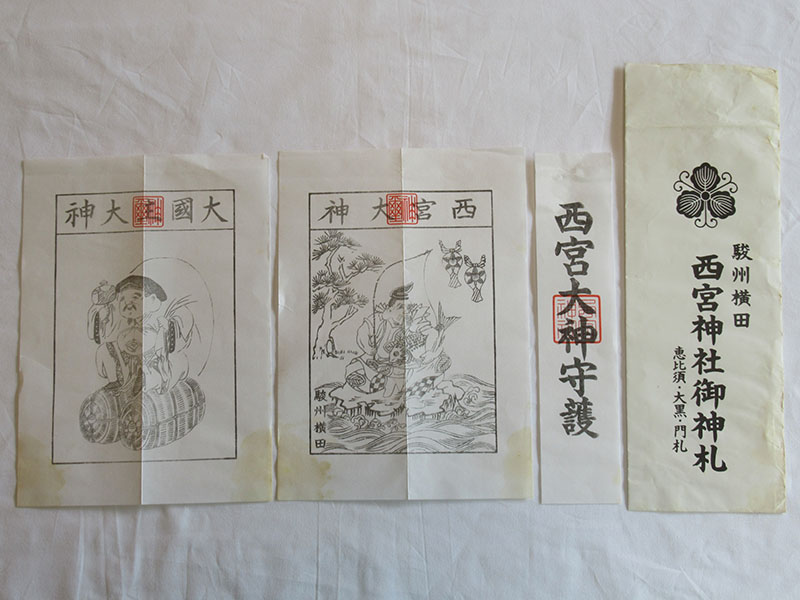 大國主大神
西宮大神
駿州横田
西宮大神守護
駿州横田
西宮神社御神札
恵比須・大黒・門札